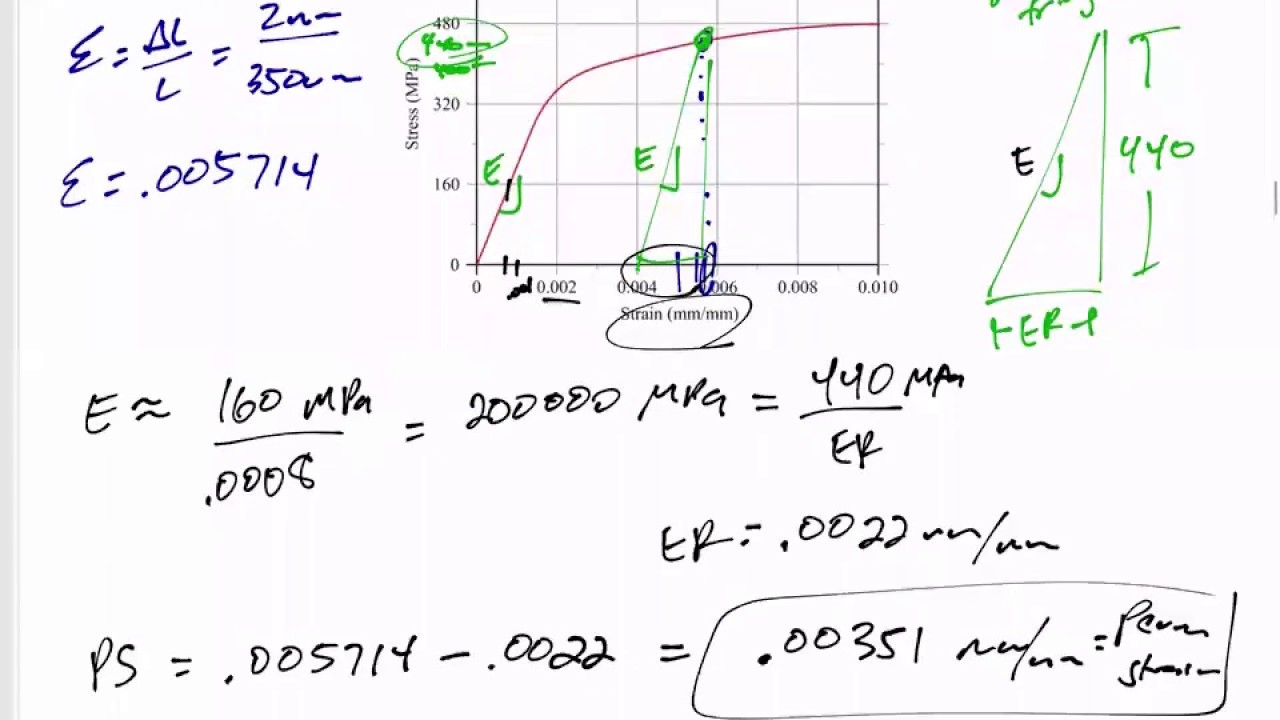 ε = ΔL/L = 2mm/350mm
ε = .005714
480
440
320
160
0
Stress (MPa)
E
E
0 0.002 0.004 0.006 0.008 0.010
Strain (mm/mm)
E
440
ER
E ≈ 160 MPa/.0008 = 200000 MPa = 440 MPa/ER
ER = .0022 mm/mm
PS = .005714 - .0022 = .00351 mm/mm = Perm
strain